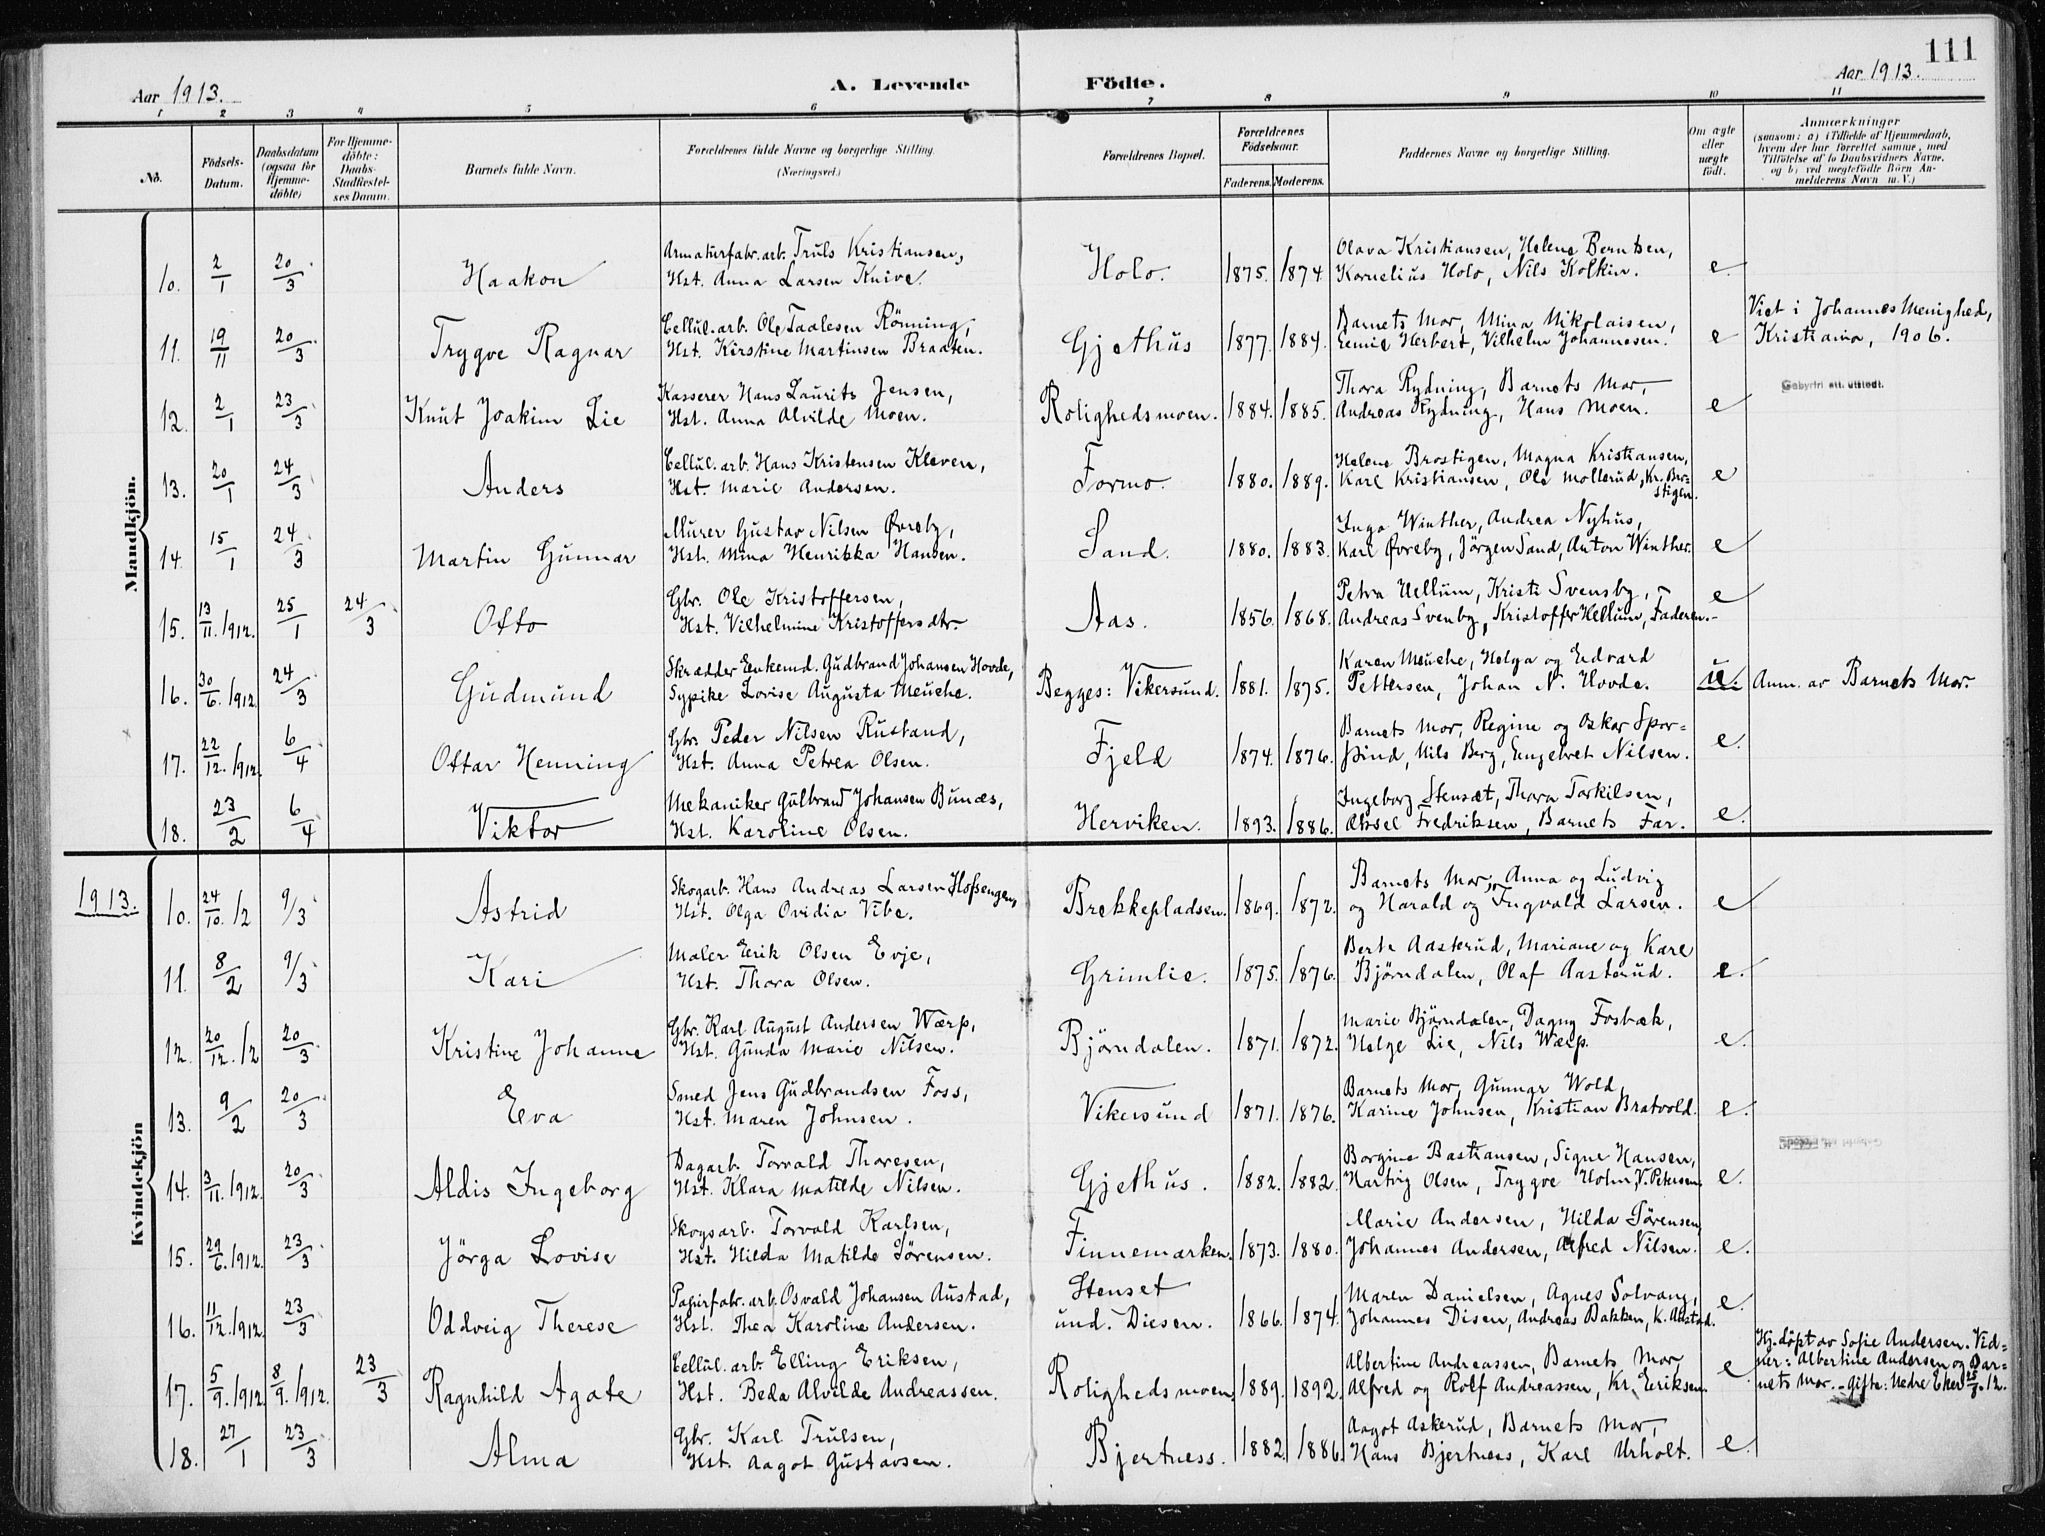 111
Aar 1913.
A. Levende
Födte.
Aar 1913.
1 2 3 4 5 6 7 8 9 10 11
No.
Födsels-
Datum.
Daabsdatum
(ogsaa for
Hjemme-
döbte)
For Hjemme-
döbte:
Daabs-
Stadfæstel-
ses Datum.
Barnets fulde Navn.
Forældrenes fulde Navne og borgerlige Stilling.
(Næringsvei.)
Forældrenes Bopæl.
Forældrenes
Födselsaar.
Faderens. Moderens.
Faddernes Navne og borgerlige Stilling.
Om ægte
eller
uægte
født.
Anmærkninger
(saasom: a) i Tilfælde af Hjemmedaab,
hvem der har forrettet samme, med
Tilföielse af to Daabsvidners Navne,
og b) ved uægtefödte Börn An-
melderens Navn m. V.)
Mandkjön.
10. 2/1 20/3 Haakon
Armaturfabr. arb. Truls Kristiansen,
Hst. Anna Larsen Knive.
Holo. 1875. 1874
Olava Kristiansen, Helene Berntsen,
Kornelius Holo, Nils Kolkin.
e.
11. 19/11 20/3 Trygve Ragnar
Cellul. arb. Ole Taalesen Rönning,
Hst. Kirstine Martinsen Braaten.
Gjethus 1877. 1884.
Barnets Mor, Mina Nikolaisen,
Eemil Herbert, Vilhelm Johannesen.
e
Viet i Johannes Menighed,
Kristiania, 1906.
12. 2/1 23/3 Knut Joakim Lie
Kasserer Hans Laurits Jensen,
Hst. Anna Alvilde Moen.
Rolighedsmoen. 1884. 1885.
Thora Rydning, Barnets Mor,
Andreas Rydning, Hans Moen.
e
Gebyrfri att. utstedt.
13. 20/1 24/3 Anders
Cellul. arb. Hans Kristensen Kleven,
Hst. Marie Andersen.
Formo. 1880. 1889.
Helene Brostigen, Magna Kristiansen,
Karl Kristiansen, Ole Mollerud, Kr. Bro-
stigen.
e
14. 15/1 24/3 Martin Gunnar
Murer Gustav Nilsen Øvreby,
Hst. Mina Henrikka Hansen.
Sand. 1880. 1883.
Inga Winther, Andrea Nyhus,
Karl Øvreby, Jörgen Sand, Anton Winther.
e
15. 13/11. 1912. 25/1 24/3 Otto
Gbr. Ole Kristoffersen,
Hst. Vilhelmine Kristoffersdtr.
Aas. 1856. 1868.
Petra Hellum, Kristi Svensby,
Andreas Svenby, Kristoffer Hellum, Faderen.
e
16. 30/6. 1912. 24/3 Gudmund
Skrædder Enkemd. Gudbrand Johansen Hovde,
Sypike Lovise Augusta Meuche.
Begges: Vikersund. 1881. 1875.
Karen Meuche, Helga og Edvard
Pettersen, Johan N. Hovde.
u.
Anm. av Barnets Mor.
17. 22/12. 1912. 6/4 Ottar Henning
Gbr. Peder Nilsen Rustand,
Hst. Anna Petrea Olsen.
Fjeld 1874. 1876.
Barnets Mor, Regine og Oskar Spor-
pind, Nils Berg, Engebret Nilsen.
e.
18. 23/2 6/4 Viktor
Mekaniker Gulbrand Johansen Bunæs,
Hst. Karoline Olsen.
Herviken. 1893. 1886.
Ingeborg Stenset, Thora Torkilsen,
Aksel Fredriksen, Barnets Far.
e.
1913.
Kvindekjön
10. 24/10. 12 9/3 Astrid
Skogarb. Hans Andreas Larsen Hofsengen,
Hst. Olga Ovidia Vibe.
Brekkepladsen. 1869. 1872.
Barnets Mor, Anna og Ludvig
og Harald og Ingvald Larsen.
e
11. 8/2 9/3 Kari
Maler Eerik Olsen Evje,
Hst. Thora Olsen.
Grimlie. 1875. 1876.
Berte Aasterud, Mariane og Karl
Björndalen, Olaf Aasterud.
e.
12. 20/12. 12 20/3 Kristine Johanne
Gbr. Karl August Andersen Wærp,
Hst. Gunda Marie Nilsen.
Björndalen. 1871. 1872.
Marie Björndalen, Dagny Fosbæk,
Helge Lie, Nils Wærp.
e.
13. 9/2 20/3 Eva
Smed Jens Gudbrandsen Foss,
Hst. Maren Johnsen.
Vikersund 1871. 1876.
Barnets Mor, Gunnar Wold,
Karine Johnsen, Kristian Bratvold.
e.
14. 3/11. 1912. 20/3 Aldis Ingeborg
Dagarb. Torvald Thoresen,
Hst. Klara Matilde Nilsen.
Gjethus. 1882. 1882.
Borgine Bastiansen, Signe Hansen,
Hartvig Olsen, Trygve Holm, V. Petersen.
e.
15. 29/6. 1912. 23/3 Jörga Lovise
Skogsarb. Torvald Karlsen,
Hst. Hilda Matilde Sørensen.
Finnemarken. 1873. 1880.
Marie Andersen, Hilda Sørensen,
Johannes Andersen, Alfred Nilsen.
e.
16. 11/12. 1912. 23/3 Oddveig Therese
Papirfabr. arb. Osvald Johansen Austad,
Hst. Thea Karoline Andersen.
Stenset
und. Diesen. 1866. 1874.
Maren Danielsen, Agnes Solvang,
Johannes Disen, Andreas Bakken, K. Austad.
e.
17. 5/9. 1912. 8/9. 1912. 23/3 Ragnhild Agate
Cellul. arb. Elling Eriksen,
Hst. Beda Alvilde Andreassen.
Rolighedsmoen. 1889. 1892.
Albertine Andreassen, Barnets Mor,
Alfred og Rolf Andreassen, Kr. Eeriksen.
e
Hj. døpt av Sofie Andersen. Vid-
ner: Albertine Andersen og Bar-
nets Mor. - Gifte: Nedre Eker 12.
18. 27/1 23/3 Alma
Gbr. Karl Trulsen,
Hst. Aagot Gustavsen.
Bjertness. 1882. 1886.
Aagot Askerud, Barnets Mor,
Hans Bjertness, Karl Urholt.
e.